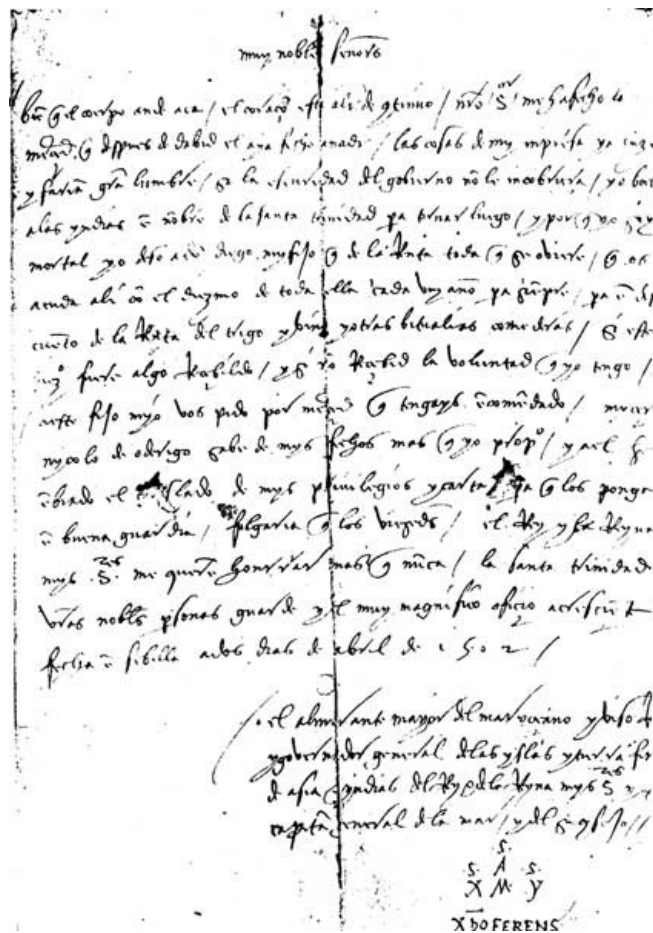 muy nobles señors
bie q el cuerpo ande aca / el coraçō esta ali de cōtinuo / nro Sor me ha fecho la
merced q dspues de dabid el aya fecho a nadi / las cosas de my impresa ya luze
y fariā grā lumbre / sy la escuridad del gobierno nō le incobrira / yo bo
a las yndias ē nōbre de la santa trinidad pa tornar luego / y porq yo soy
mortal yo deso a dō diego my fijo q de la Rēta toda q se obiere / q os
acuda ali cō el diezmo de toda ella cada un año pa siēpre / pa ē ds
cuēto de la Rēta del trigo y vino y otras bitualias comederas / si este
fuere algo Reçebildo / y si nō Reçebid la voluntad q yo tengo /
a este fijo myo vos pido por merçed q tengays ēcomēdado / miçer
nycolo de oderigo sabe de mys fechos mas q yo propo / y a el
ēbiado el treslado de mys privilegios y cartas / pa q los ponga
ē buena guardia / folgaria q los vieseds / el Rey y la Reyna
mys Sres me querē honrrar mas q nūca / la santa trinidad
vras nobls psonas guarde y el muy magnifico ofiçio acresciēt
fecha ē sibilla a dos dias de abril de 1502 /
el almirante mayor del mar oçeano y viso Re
y governador general de las yslas y tierra fir
de asia & yndias del Rey & de la Reyna mys Sres y
capitā general de la mar / y del su qsejo //
.S.
.S. A .S.
X M Y
Xp̄o FERENS